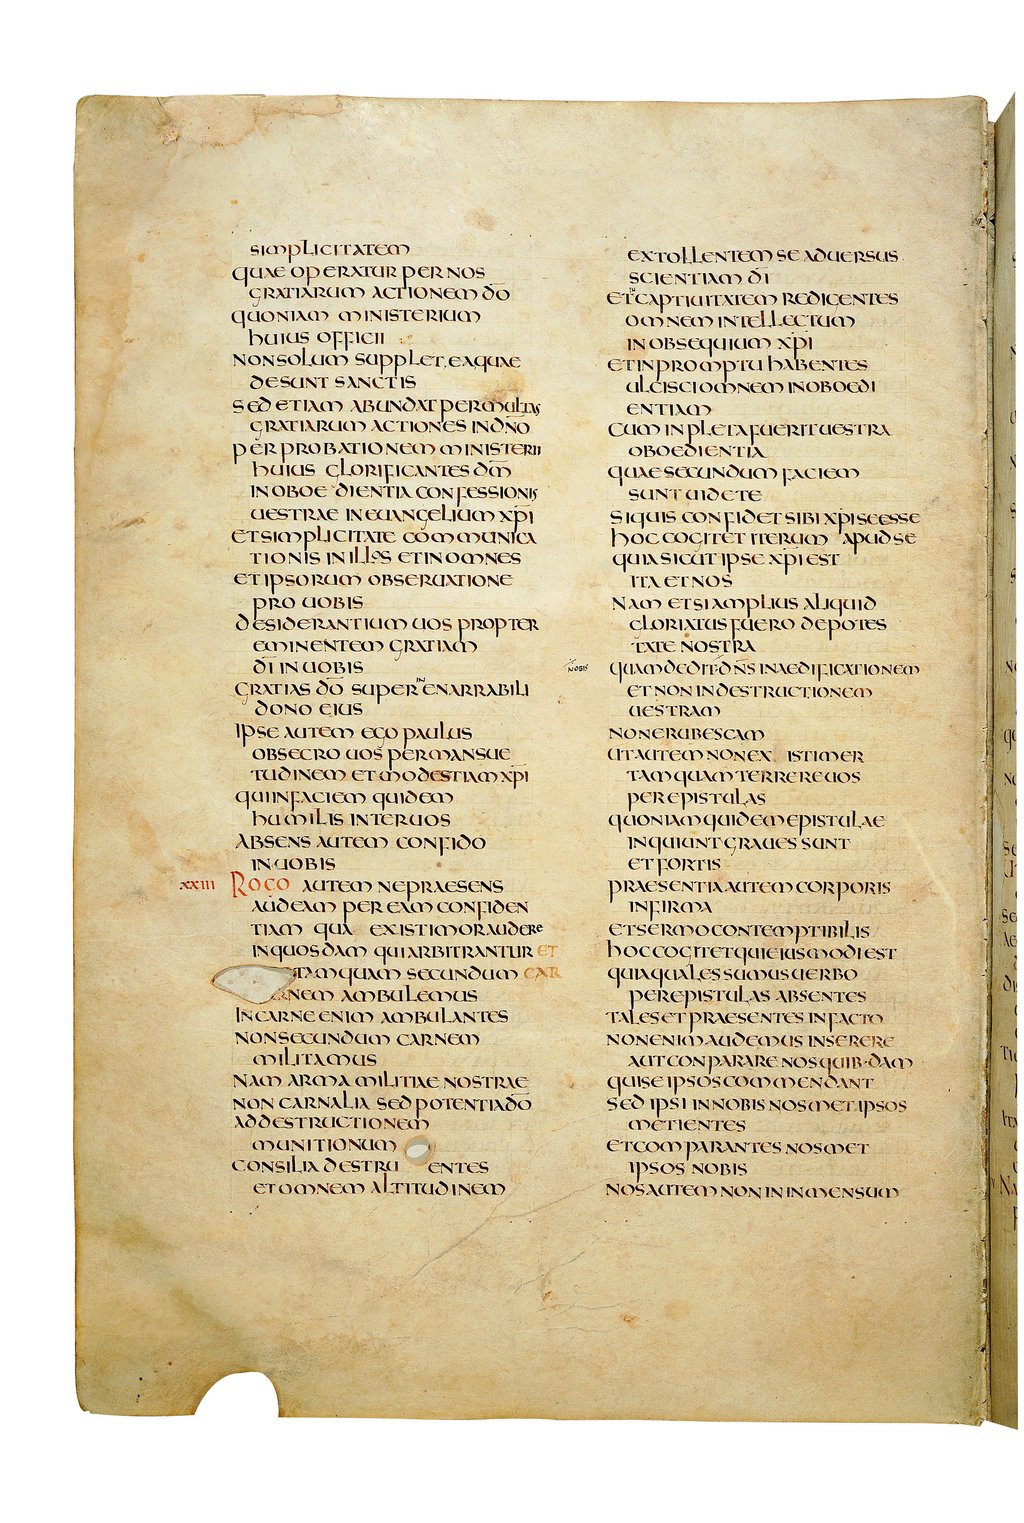 SIMPLICITATEM
QUAE OPERATUR PER NOS
GRATIARUM ACTIONEM D̅O̅
QUONIAM MINISTERIUM
HUIUS OFFICII
NON SOLUM SUPPLET EA QUAE
DESUNT SANCTIS
SED ETIAM ABUNDAT PER MULTAS
GRATIARUM ACTIONES IN D̅N̅O̅
PER PROBATIONEM MINISTERII
HUIUS GLORIFICANTES D̅M̅
IN OBOEDIENTIA CONFESSIONIS
UESTRAE IN EUANGELIUM X̅P̅I̅
ET SIMPLICITATE COMMUNICA
TIONIS IN ILLOS ET IN OMNES
ET IPSORUM OBSERUATIONE
PRO UOBIS
DESIDERANTIUM UOS PROPTER
EMINENTEM GRATIAM
D̅I̅ IN UOBIS
GRATIAS D̅O̅ SUPER INENARRABILI
DONO EIUS
IPSE AUTEM EGO PAULUS
OBSECRO UOS PER MANSUE
TUDINEM ET MODESTIAM X̅P̅I̅
QUI IN FACIEM QUIDEM
HUMILIS INTER UOS
ABSENS AUTEM CONFIDO
IN UOBIS
XXIII ROGO AUTEM NE PRAESENS
AUDEAM PER EAM CONFIDEN
TIAM QUA EXISTIMOR AUDERE
IN QUOSDAM QUI ARBITRANTUR ET
TAMQUAM SECUNDUM CAR
RNEM AMBULEMUS
IN CARNE ENIM AMBULANTES
NON SECUNDUM CARNEM
MILITAMUS
NAM ARMA MILITIAE NOSTRAE
NON CARNALIA SED POTENTIA D̅O̅
AD DESTRUCTIONEM
MUNITIONUM
CONSILIA DESTRU ENTES
ET OMNEM ALTITUDINEM
EXTOLLENTEM SE ADUERSUS
SCIENTIAM D̅I̅
ET IN CAPTIUITATEM REDIGENTES
OMNEM INTELLECTUM
IN OBSEQUIUM X̅P̅I̅
ET IN PROMPTU HABENTES
ULCISCI OMNEM INOBOEDI
ENTIAM
CUM INPLETA FUERIT UESTRA
OBOEDIENTIA
QUAE SECUNDUM FACIEM
SUNT UIDETE
SI QUIS CONFIDET SIBI X̅P̅I̅ SE ESSE
HOC COGITET ITERUM APUD SE
QUIA SICUT IPSE X̅P̅I̅ EST
ITA ET NOS
NAM ET SI AMPLIUS ALIQUID
GLORIATUS FUERO DE POTES
TATE NOSTRA
NOBIS QUAM DEDIT D̅N̅S̅ IN AEDIFICATIONEM
ET NON IN DESTRUCTIONEM
UESTRAM
NON ERUBESCAM
UT AUTEM NON EXISTIMER
TAMQUAM TERRERE UOS
PER EPISTULAS
QUONIAM QUIDEM EPISTULAE
INQUIUNT GRAUES SUNT
ET FORTIS
PRAESENTIA AUTEM CORPORIS
INFIRMA
ET SERMO CONTEMPTIBILIS
HOC COGITET QUI EIUSMODI EST
QUIA QUALES SUMUS UERBO
PER EPISTULAS ABSENTES
TALES ET PRAESENTES IN FACTO
NON ENIM AUDEMUS INSERERE
AUT CONPARARE NOS QUIBDAM
QUI SE IPSOS COMMENDANT
SED IPSI IN NOBIS NOSMET IPSOS
METIENTES
ET COMPARANTES NOSMET
IPSOS NOBIS
NOS AUTEM NON IN INMENSUM